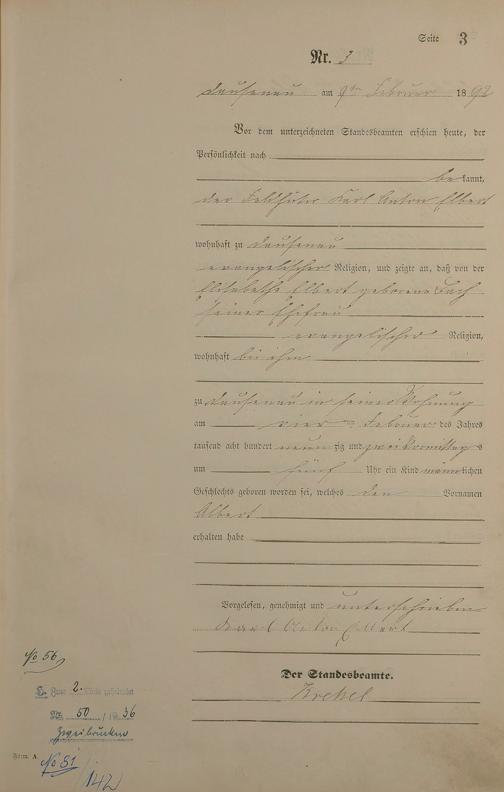 Seite 3
Nr. 3
Dausenau am 9ten Februar 1892
Vor dem unterzeichneten Standesbeamten erschien heute, der
Persönlichkeit nach
bekannt,
der Feldhüter Karl Anton Elbert
wohnhaft zu Dausenau
evangelischer Religion, und zeigte an, daß von der
Elbert geborene Bach
seiner Ehefrau
evangelischer Religion,
wohnhaft bei ihm
zu Dausenau in seiner Wohnung
am vier Februar des Jahres
tausend acht hundert neunzig und zwei Vormittags
um fünf Uhr ein Kind männlichen
Geschlechts geboren worden sei, welches den Vornamen
Albert
erhalten habe
Vorgelesen, genehmigt und unterschrieben
Karl Anton Elbert
Der Standesbeamte.
Krekel
No 56
2.
Nr. 50 / 1936
Zweibrücken
Form. A.
No 51
142